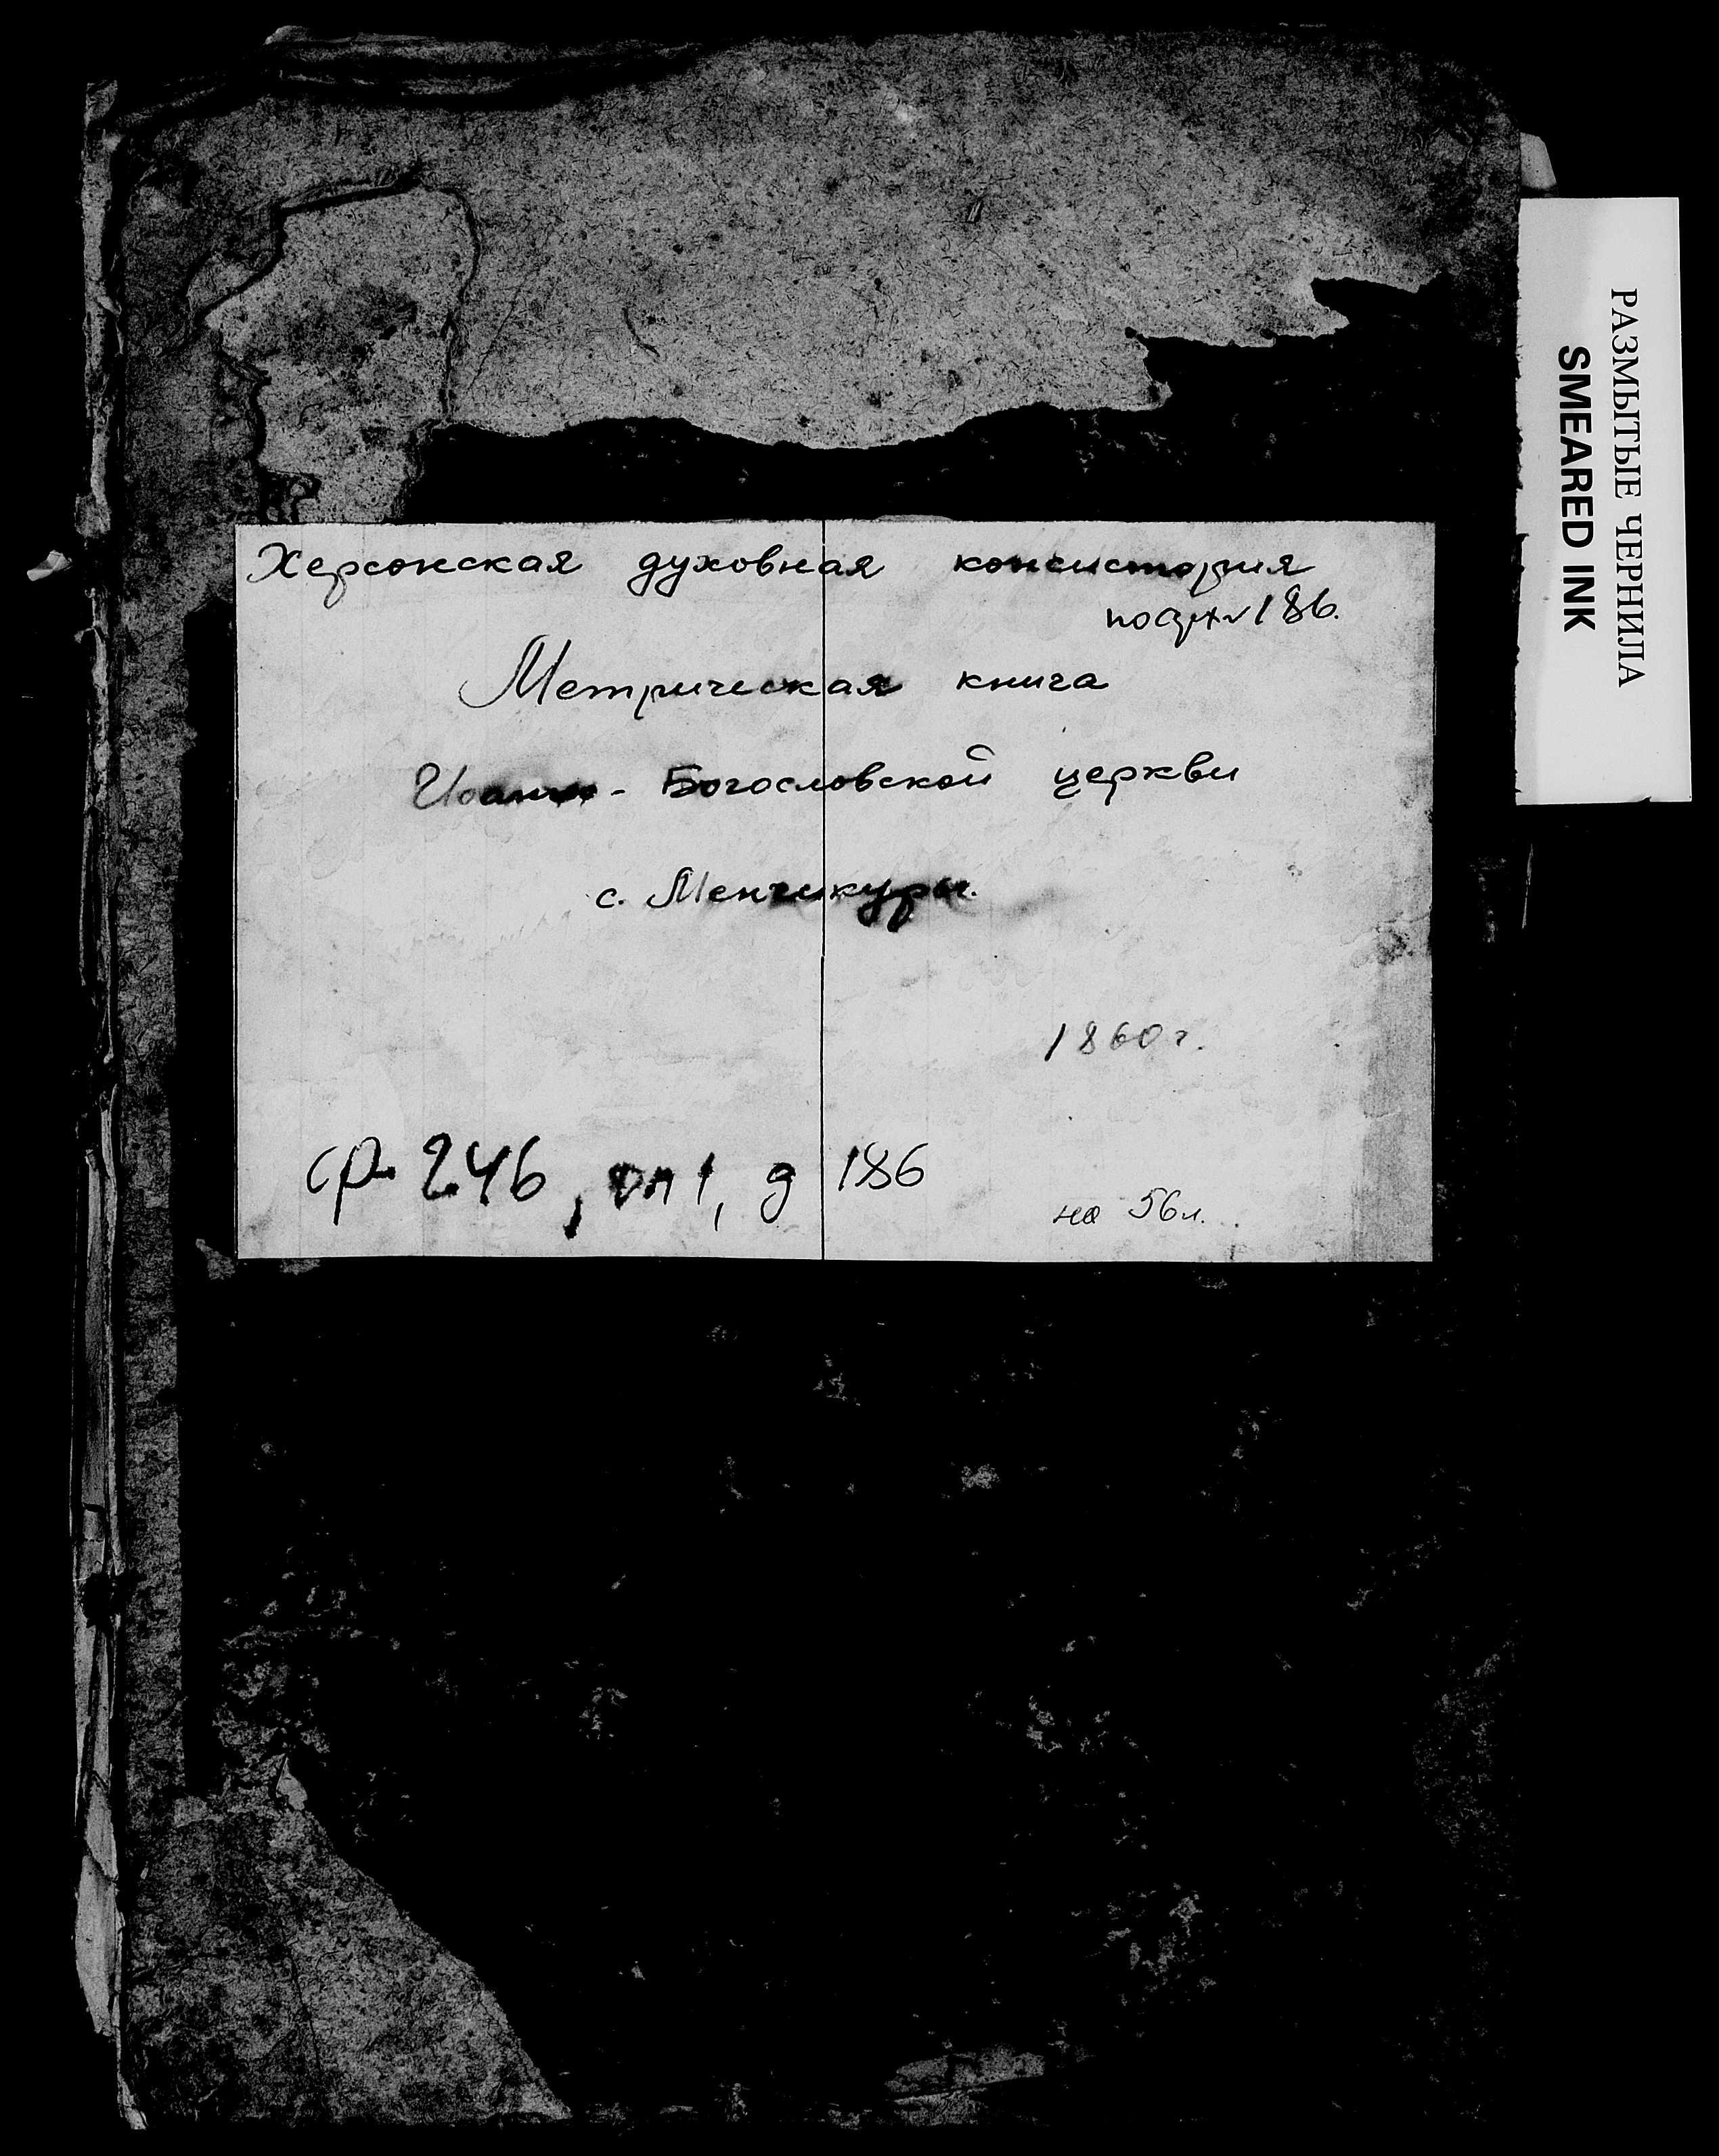 Херсонская духовная консистория
186.
Метрическая книга
Иоанно - Богословской церкви
с. Менчикуры.
1860 г.
ф. 246, оп 1, д 186
на 56 л.
РАЗМЫТЫЕ ЧЕРНИЛА
SMEARED INK